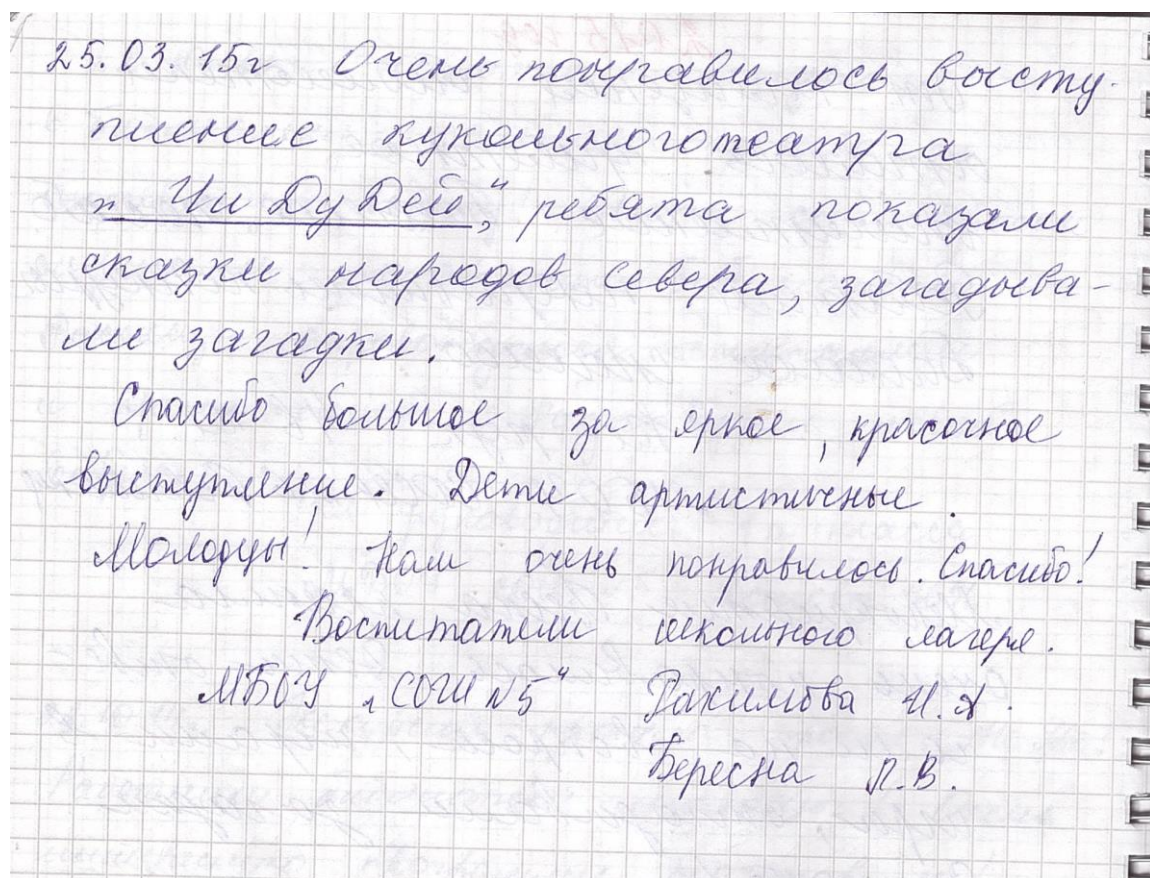 25.03.15г Очень понравилось высту-
пление кукольноготеатра
„Чи Ду Дей", ребята показали
сказки народов севера, загадыва-
ли загадки.
Спасибо большое за яркое, красочное
выступление. Дети артистичные.
Молодцы! Нам очень понравилось. Спасибо!
Воспитатели школьного лагеря.
МБОУ „СОШ №5" Рахимова И.А.
Бересна Л.В.